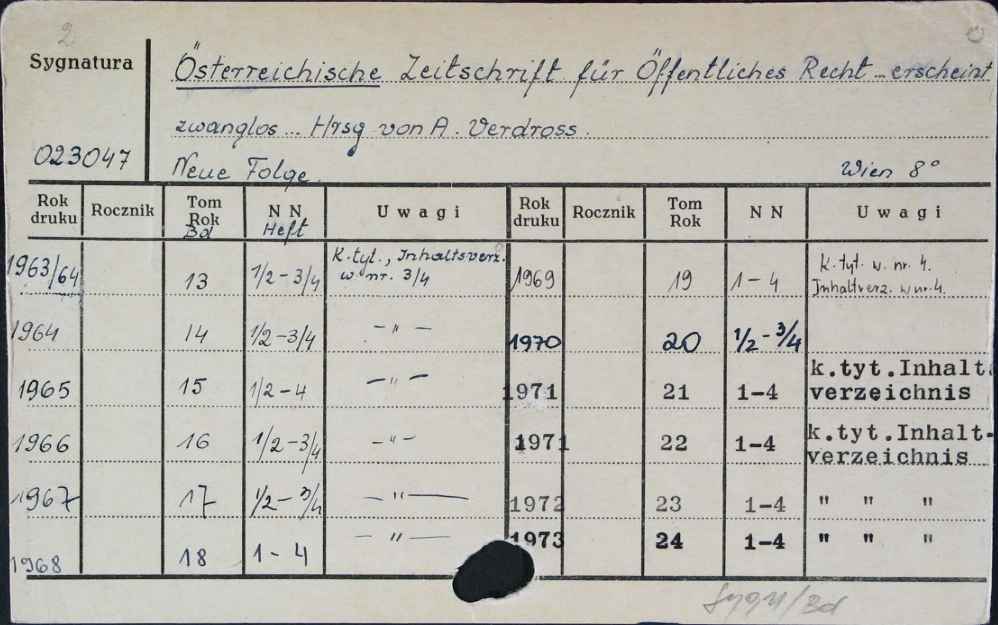 2
Sygnatura
Österreichische Zeitschrift für Öffentliches Recht ... erscheint
zwanglos ... Hrsg von A. Verdross.
023047
Neue Folge. Wien 8°
Rok druku Rocznik Tom Rok Bd N N Heft Uwagi Rok druku Rocznik Tom Rok N N Uwagi
1963/64 13 1/2-3/4 K.tyt., Inhaltsverz. w nr. 3/4 1969 19 1-4 K.tyt. w. nr. 4. Inhaltverz. w nr. 4.
1964 14 1/2-3/4 — " — 1970 20 1/2-3/4
1965 15 1/2-4 — " — 1971 21 1-4 k.tyt.Inhalt. verzeichnis
1966 16 1/2-3/4 — " — 1971 22 1-4 k.tyt.Inhalt- verzeichnis
1967 17 1/2-3/4 — " — 1972 23 1-4 " " "
1968 18 1-4 — " — 1973 24 1-4 " " "